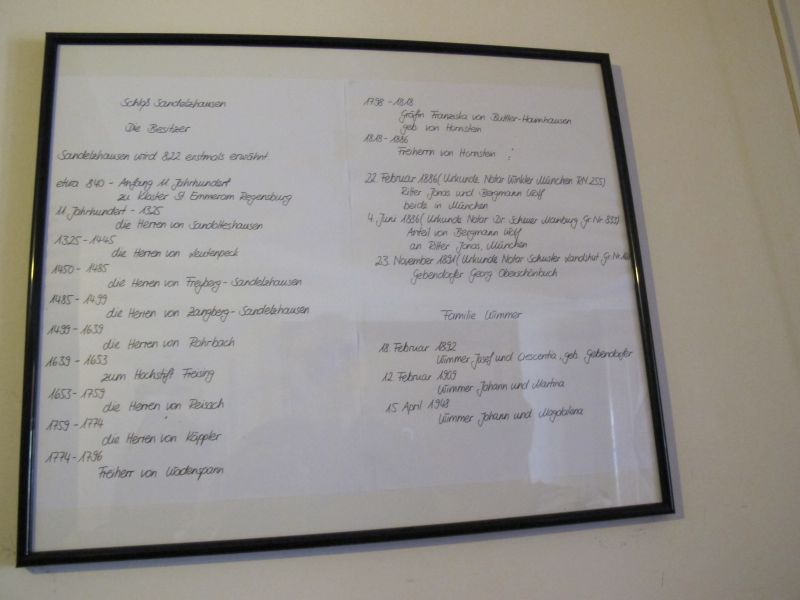 Schloß Sandelzhausen
Die Besitzer
Sandelzhausen wird 822 erstmals erwähnt.
etwa 840 - Anfang 11 Jahrhundert
zu Kloster St Emmeram Regensburg
11 Jahrhundert - 1325
die Herren von Sandolteshausen
1325 - 1445
die Herren von Leutenpeck
1450 - 1485
die Herren von Freyberg - Sandelzhausen
1485 - 1499
die Herren von Zangberg - Sandelzhausen
1499 - 1639
die Herren von Rohrbach
1639 - 1653
zum Hochstift Freising
1653 - 1759
die Herren von Reisach
1759 - 1774
die Herren von Käppler
1774 - 1796
Freiherr von Wadenspann
1798 - 1818
Gräfin Franziska von Buttler-Haimhausen
geb von Hornstein
1818 - 1886
Freiherrn von Hornstein
22. Februar 1886 (Urkunde Notar Winkler München RN. 255)
Ritter Jonas und Bergmann Wolf
beide in München
4. Juni 1886 (Urkunde Notar Dr Schwer Mainburg Gr. Nr. 833)
Anteil von Bergmann Wolf
an Ritter Jonas, München
23. November 1891 (Urkunde Notar Schuster Landshut Gr. Nr.
Gebendorfer Georg Oberschönbuch
Familie Wimmer
18. Februar 1892
Wimmer Josef und Crescentia, geb. Gebendorfer
12 Februar 1909
Wimmer Johann und Martina
15 April 1948
Wimmer Johann und Magdalena